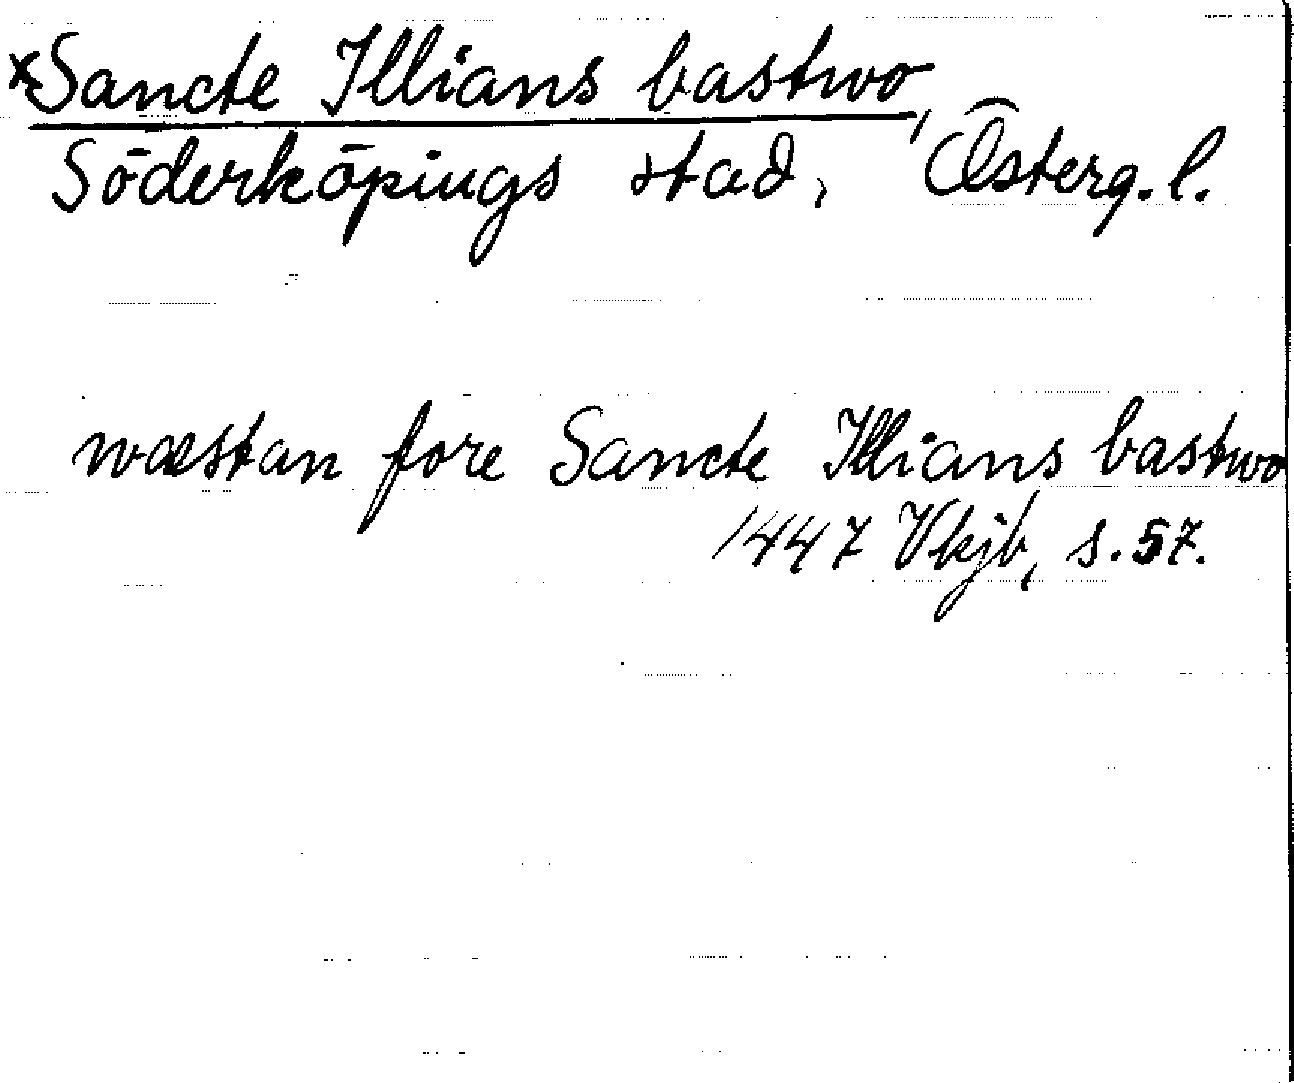 ×Sancte Illians bastwo,
Söderköpings stad, Österg. l.
wæstan fore Sancte Illians bastwo
1447 Vkjb, s. 57.